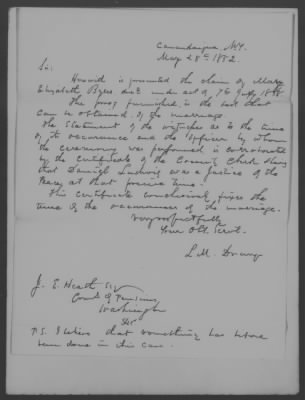 Canandaigua, N.Y.
May 28th 1852.
Sir:
Herewith is presented the claim of Mary
Elizabeth Byers dec'd under act of 7th July 1838
The proof furnished is the best that
can be obtained, of the marriage.
The statement of the witnesses as to the time
of its occurrence and the officer by whom
the ceremony was performed is corroborated
by the certificate of the County Clerk
that Daniel Ludwig was a justice of the
Peace, at that precise time.
This certificate conclusively fixes the
time of the occurrence of the marriage.
Very respectfully
Your Obt. Servt.
L. M. Drury
J. E. Heath Esq
Comr of Pensions
Washington
P.S. I believe that something has before
been done in this case.